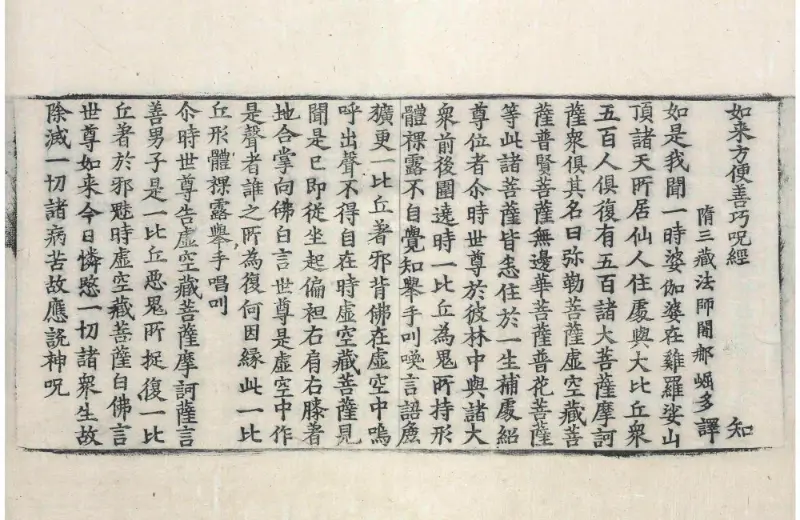 如来方便善巧呪經 知
隋三藏法師闍那崛多譯
如是我聞一時婆伽婆在雞羅娑山
頂諸天所居仙人住處與大比丘衆
五百人俱復有五百諸大菩薩摩訶
薩衆俱其名曰弥勒菩薩虛空藏菩
薩普賢菩薩無邊華菩薩普花菩薩
等此諸菩薩皆悉住於一生補處紹
尊位者尒時世尊於彼林中與諸大
衆前後圍遶時一比丘為鬼所持形
體裸露不自覺知舉手叫喚言語麁
獷更一比丘著邪背佛在虛空中嗚
呼出聲不得自在時虛空藏菩薩見
聞是已即從坐起偏袒右肩右膝著
地合掌向佛白言世尊是虛空中作
是聲者誰之所為復何因緣此一比
丘形體裸露舉手唱叫
尒時世尊告虛空藏菩薩摩訶薩言
善男子是一比丘惡鬼所捉復一比
丘著於邪魅時虛空藏菩薩白佛言
世尊如来今日憐愍一切諸衆生故
除滅一切諸病苦故應說神呪